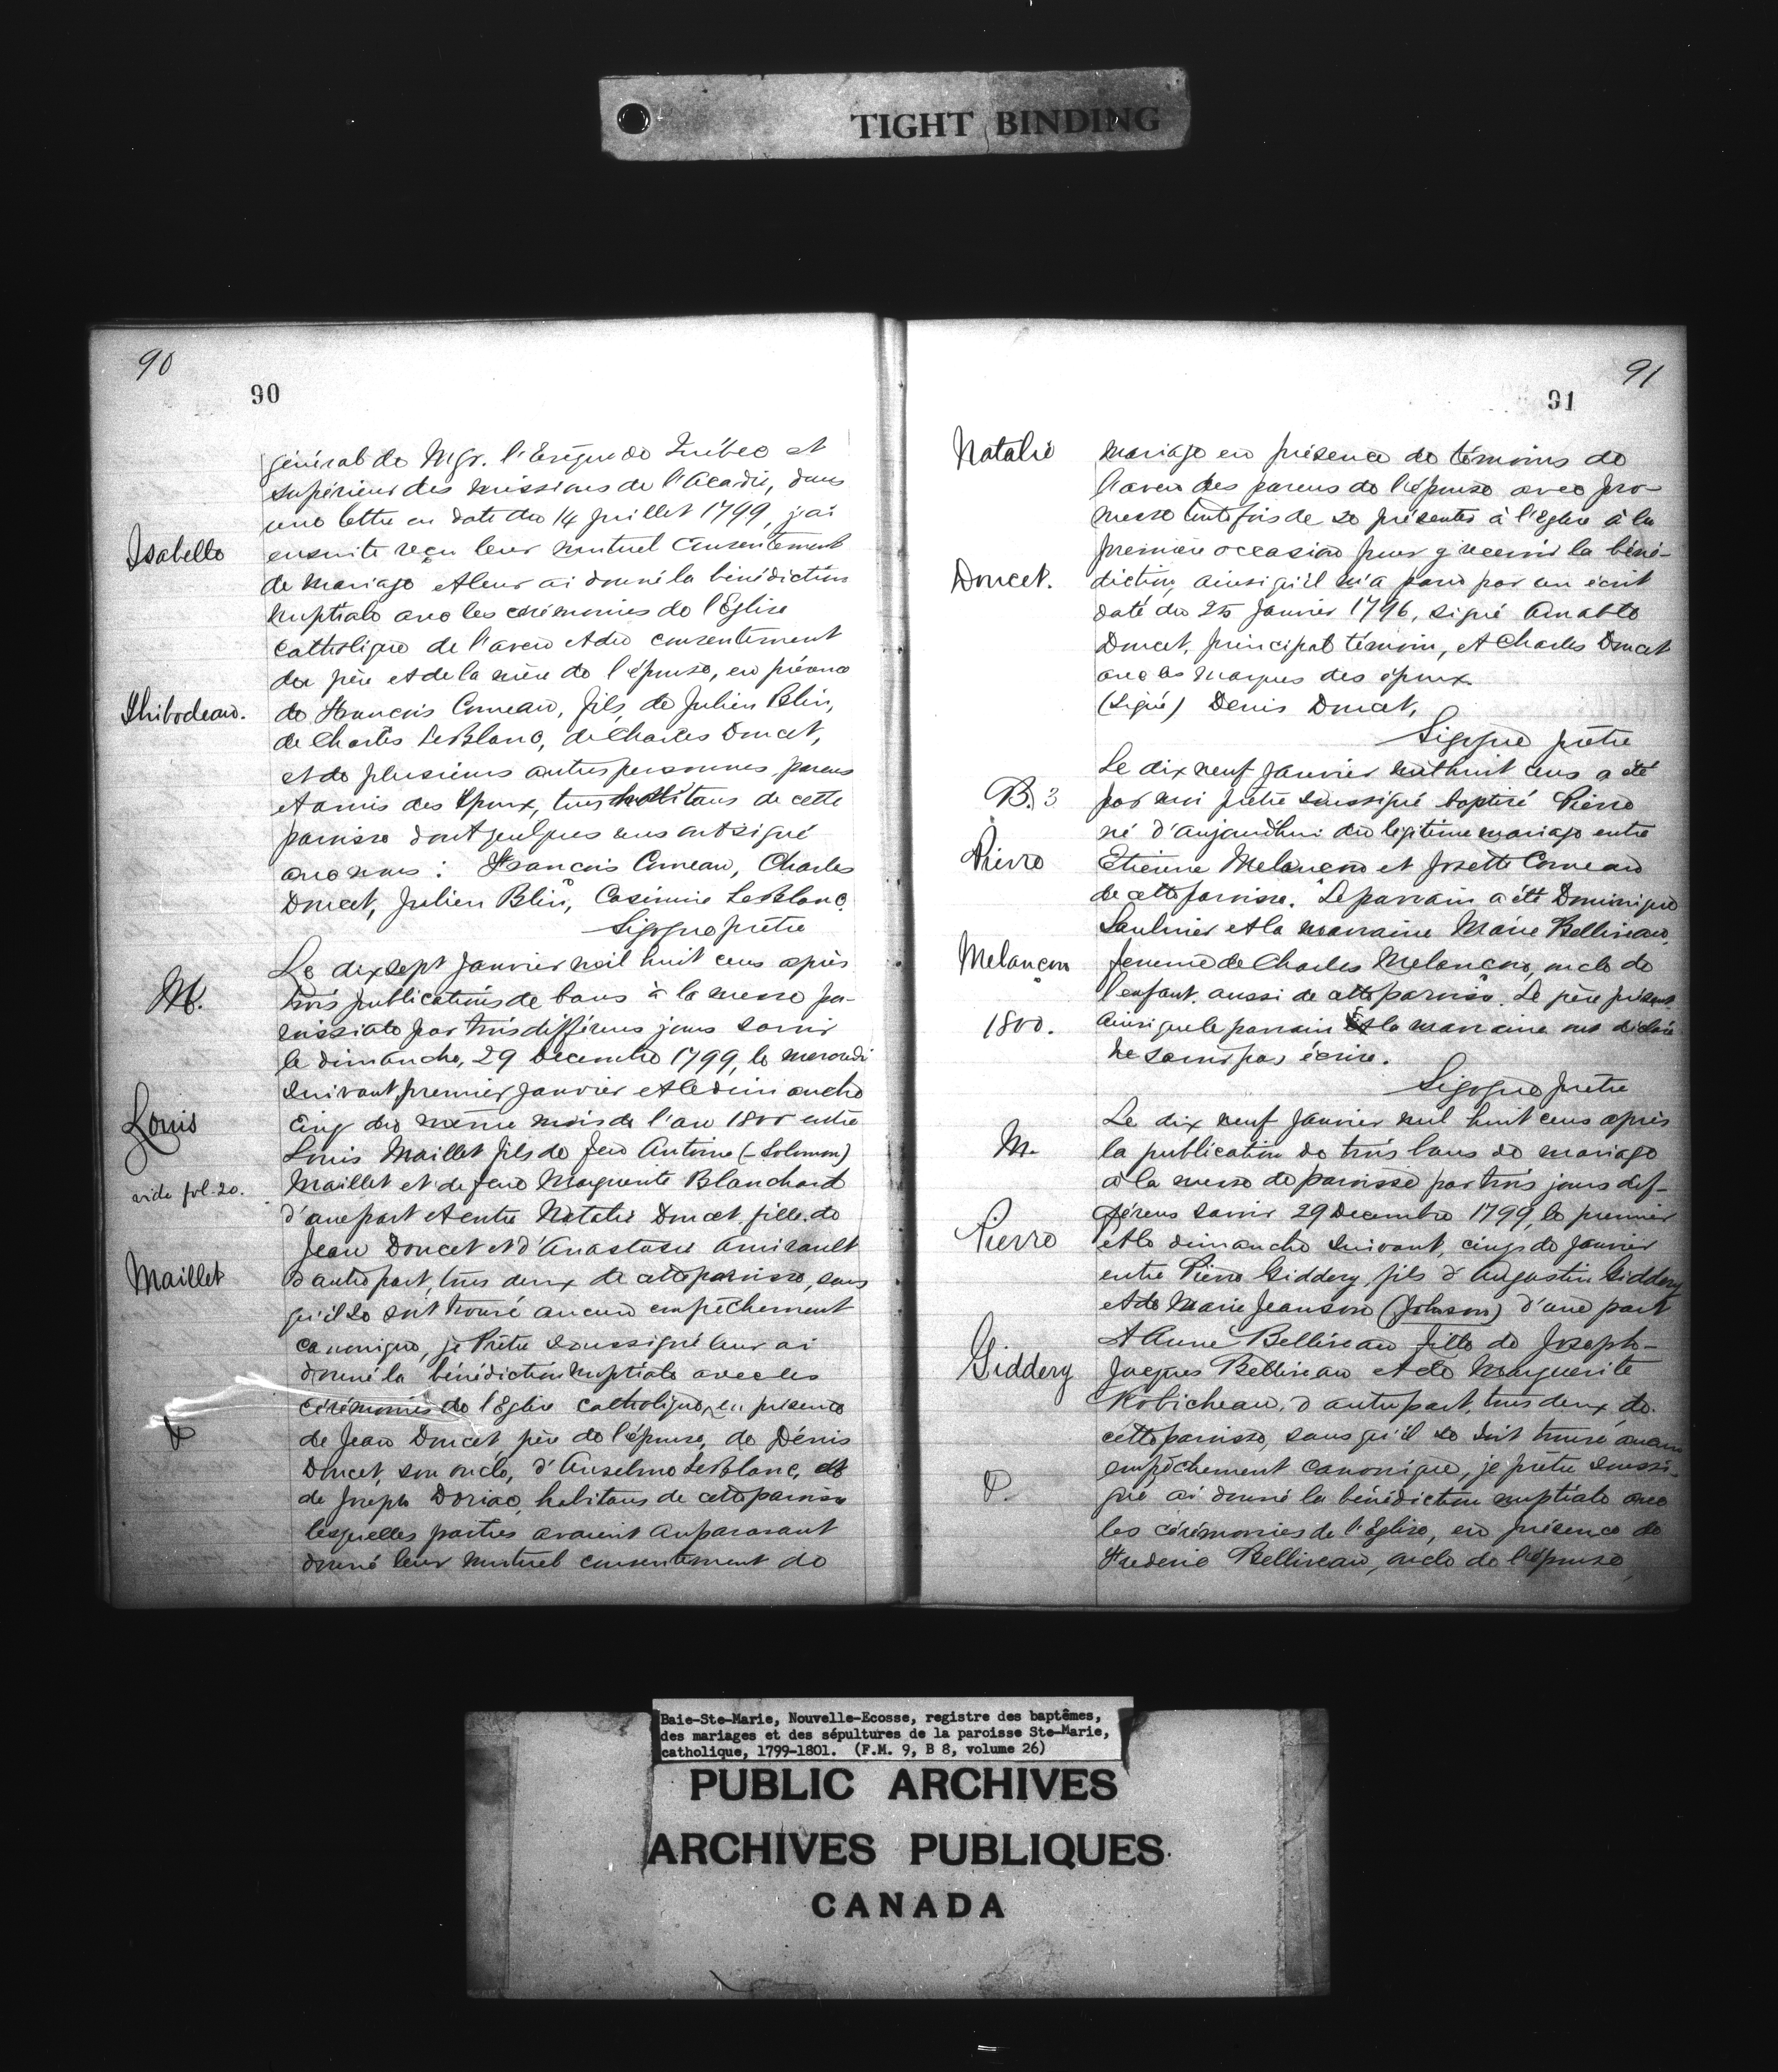 TIGHT BINDING
90
90
général de Mgr. l'Evêque de Québec et
supérieur des missions de l'Acadie, dans
une lettre en date du 14 Juillet 1799, j'ai
Isabelle
ensuite reçu leur mutuel consentement
de mariage et leur ai donné la bénédiction
nuptiale avec les cérémonies de l'Eglise
Catholique de l'aveu et du consentement
du père et de la mère de l'épouse, en présence
Thibodeau.
de Francois Comeau, fils, de Julien Blin,
de Charles LeBlanc, de Charles Doucet,
et de plusieurs autres personnes parens
et amis des Epoux, tous habitans de cette
paroisse dont quelques uns ont signé
avec nous : Francois Comeau, Charles
Doucet, Julien Blin, Casimire LeBlanc.
Sigogne prêtre
Le dix sept Janvier mil huit cens après
M.
trois publications de bans à la messe pa-
roissiale par trois différens jours savoir
le dimanche, 29 Decembre 1799, le mercredi
suivant, premier Janvier et le dimanche
Louis
cinq du même mois de l'an 1800 entre
Louis Maillet fils de feu Antoine (-Solomon)
vide fol. 20.
Maillet et de feue Marguerite Blanchard
d'une part et entre Natalie Doucet, fille de
Jean Doucet et d'Anastasie Amirault
Maillet
d'autre part, tous deux de cette paroisse, sans
qu'il se soit trouvé aucun empêchement
canonique, je Prêtre soussigné leur ai
donné la bénédiction nuptiale avec les
cérémonies de l'Eglise catholique, en présence
de Jean Doucet, père de l'épouse, de Dénis
Doucet, son oncle, d'Anselme LeBlanc, et
de Joseph Doriac, habitans de cette paroisse
lesquelles parties avaient auparavant
donné leur mutuel consentement de
91
91
Natalie
mariage en présence de témoins de
l'aveu des parens de l'épouse avec pro-
messe toutefois de se présenter à l'Eglise à la
première occasion pour y recevoir la béné-
Doucet.
diction, ainsi qu'il m'a paru par un écrit
daté du 25 Janvier 1796, signé Amable
Doucet, principal témoin, et Charles Doucet
avec les marques des époux.
(Signé) Denis Doucet,
Sigogne prêtre
Le dix neuf Janvier mil huit cens a été
B. 3
par moi prêtre soussigné baptisé Pierre
né d'aujourd'hui du légitime mariage entre
Pierre
Etienne Melançon et Josette Comeau
de cette paroisse. Le parrain a été Dominique
Saulnier et la marraine Marie Belliveau,
Melançon
femme de Charles Melançon, oncle de
l'enfant, aussi de cette paroisse. Le père présent
1800.
ainsi que le parrain et la marraine ont déclaré
ne savoir pas écrire.
Sigogne prêtre
Le dix neuf Janvier mil huit cens après
M.
la publication de trois bans de mariage
à la messe de paroisse par trois jours dif-
férens savoir 29 Decembre 1799, le premier
Pierro
et le dimanche suivant, cinq de Janvier
entre Pierre Giddery, fils d'Augustin Giddery
et de Marie Jeanson (Johnson) d'une part
et Anne Belliveau fille de Joseph-
Giddery
Jacques Belliveau et de Marguerite
Robicheau, d'autre part, tous deux de
cette paroisse, sans qu'il se soit trouvé aucun
empêchement canonique, je prêtre soussi-
P.
gné ai donné la bénédiction nuptiale avec
les cérémonies de l'Eglise, en présence de
Frederic Belliveau, oncle de l'épouse,
Baie-Ste-Marie, Nouvelle-Ecosse, registre des baptêmes,
des mariages et des sépultures de la paroisse Ste-Marie,
catholique, 1799-1801. (F.M. 9, B 8, volume 26)
PUBLIC ARCHIVES
ARCHIVES PUBLIQUES
CANADA